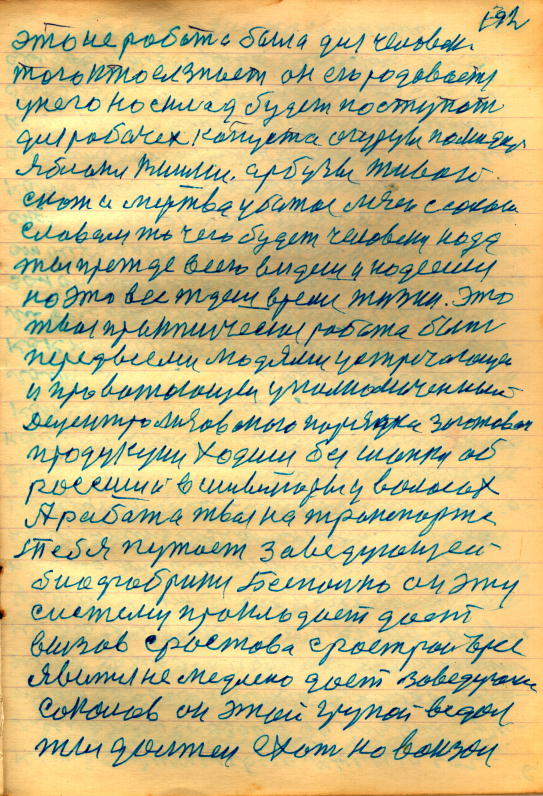 192
это не работа была для человека
того кто ел знает он его родовается
у него на склад будет поступат
для рабочех капуста огурцы помидор
яблоки вишни. арбузы живого
скота и мертва убитое мяса с
словам то чего будет человеку нада
ты прежде всего видеш и надееши
но это все ждеш время жизни. Это
твоя практическая работа быт
перед всеми людями
и проватающи уполномоченный
децентролизованого порядка заготовки
продукции Ходиш без шапки об
россший в и волосах
А работа твоя на транспорте
тебя путает заведующей
биофабрики Беспалко он эту
систему прокладает дает
вызов с ростова с ростройторг
явится не медлено дает заведующи
соколов он этой групой ведал
ты должен ехат на вокзал